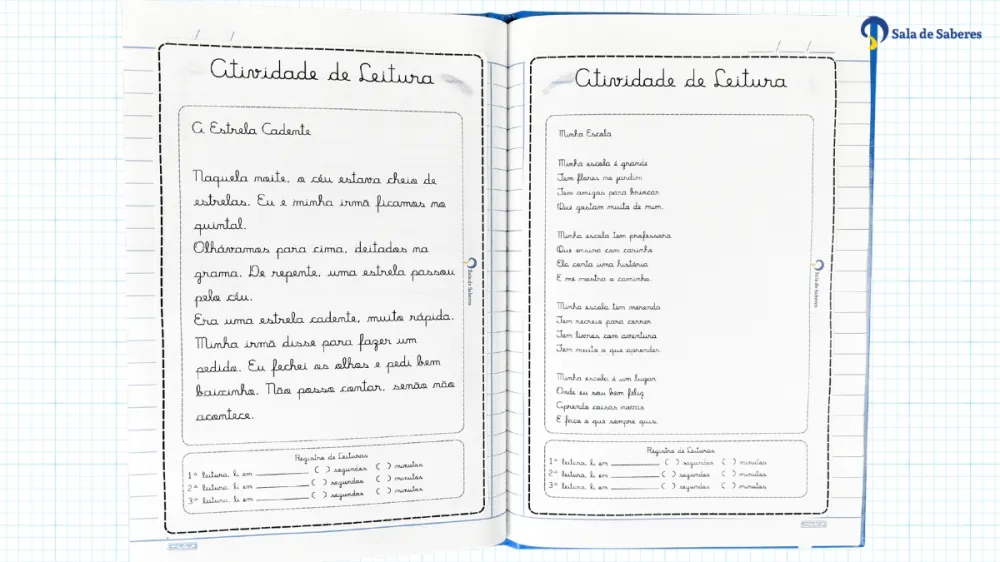 Sala de Saberes
/ /
Atividade de Leitura
A Estrela Cadente
Naquela noite, o céu estava cheio de
estrelas. Eu e minha irmã ficamos no
quintal.
Olhávamos para cima, deitados na
grama. De repente, uma estrela passou
pelo céu.
Era uma estrela cadente, muito rápida.
Minha irmã disse para fazer um
pedido. Eu fechei os olhos e pedi bem
baixinho. Não posso contar, senão não
acontece.
Sala de Saberes
Registro de Leituras
1ª leitura, li em ________ ( ) segundos ( ) minutos
2ª leitura, li em ________ ( ) segundos ( ) minutos
3ª leitura, li em ________ ( ) segundos ( ) minutos
___/___/___
Atividade de Leitura
Minha Escola
Minha escola é grande
Tem flores no jardim
Tem amigos para brincar
Que gostam muito de mim.
Minha escola tem professora
Que ensina com carinho
Ela conta uma história
E me mostra o caminho.
Minha escola tem merenda
Tem recreio para correr
Tem livros com aventura
Tem muito o que aprender.
Minha escola é um lugar
Onde eu sou bem feliz
Aprendo coisas novas
E faço o que sempre quis.
Sala de Saberes
Registro de Leituras
1ª leitura, li em ________ ( ) segundos ( ) minutos
2ª leitura, li em ________ ( ) segundos ( ) minutos
3ª leitura, li em ________ ( ) segundos ( ) minutos